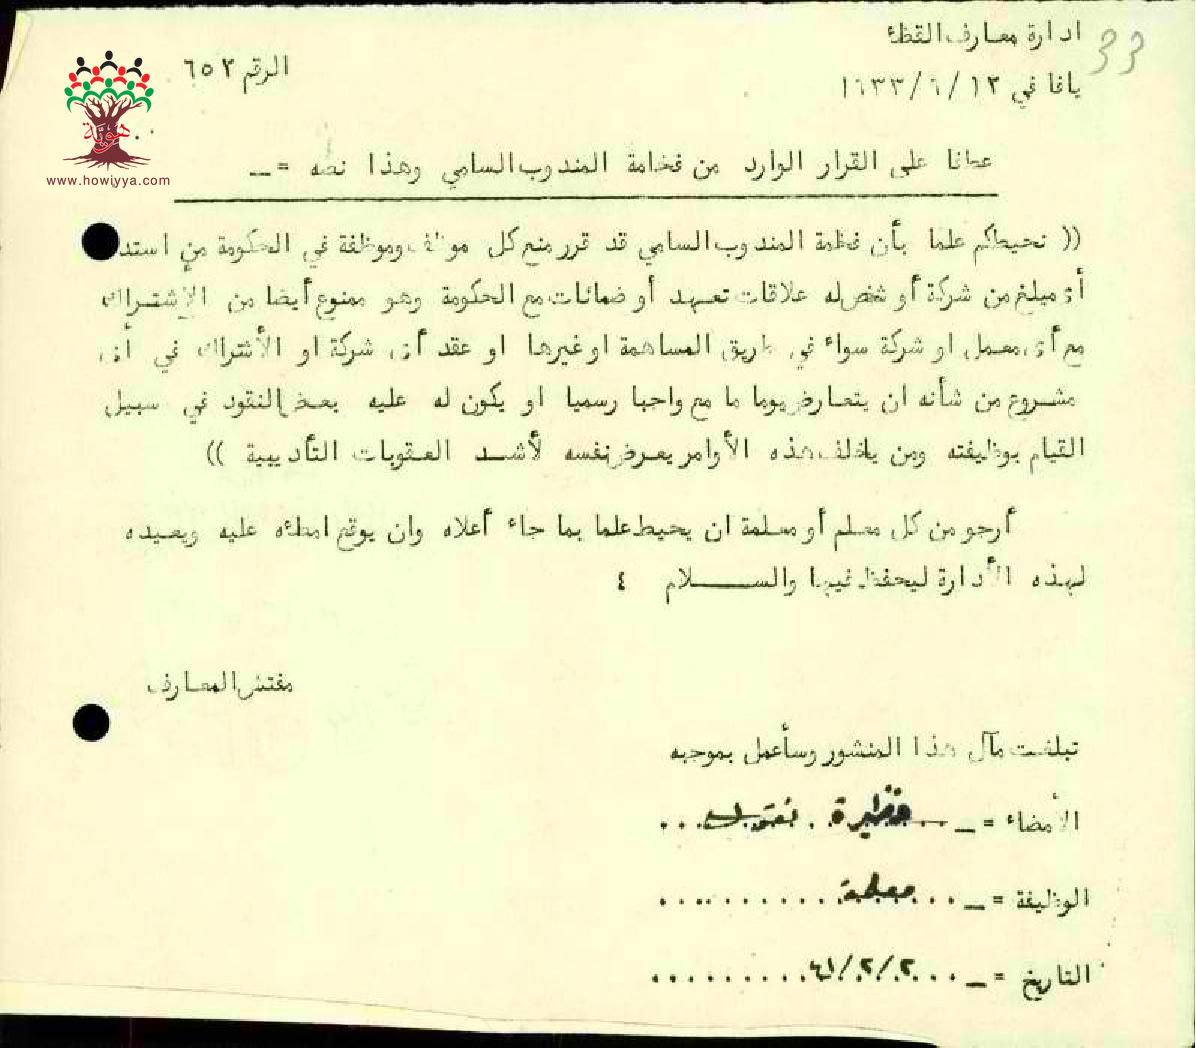 ادارة معارف القضاء
33
الرقم ٦٥٢
يافا في ١٢/٦/١٩٣٣
هوية
www.howiyya.com
عطفا على القرار الوارد من فخامة المندوب السامي وهذا نصه =ـ
(( نحيطكم علما بأن فخامة المندوب السامي قد قرر منع كل موظف وموظفة في الحكومة من
أى مبلغ من شركة أو شخص له علاقات تعهد أو ضمانات مع الحكومة وهو ممنوع أيضا من الإشتراك
مع أى معمل او شركة سواء في طريق المساهمة او غيرها او عقد أى شركة او الأشتراك في أى
مشروع من شأنه ان يتعارض يوما ما مع واجبا رسميا او يكون له عليه بعض النقود في سبيل
القيام بوظيفته ومن يخالف هذه الأوامر يعرض نفسه لأشد العقوبات التأديبية ))
أرجو من كل معلم أو معلمة ان يحيط علما بما جاء أعلاه وان يوقع امضاءه عليه ويعيده
لهذه الأدارة ليحفظ فيها والسـلام ٤
مفتش المعارف
تبلغت مآل هذا المنشور وسأعمل بموجبه
الأمضاء =ـ
الوظيفة =ـ ... معلمة ..........
التاريخ =ـ